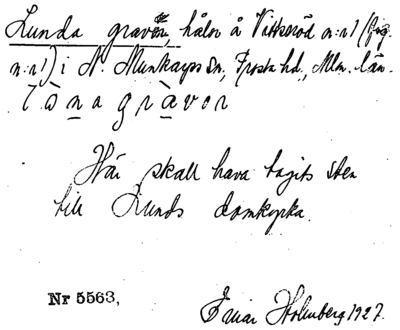 Lunda graven, hålor å Vittseröd n:r 1 (fig.
n:r 1) i N. Munkarps sn, Frosta hd., Mlm. län.
làna gràvor
Här skall hava tagits sten
till Lunds domkyrka.
Nr 5563,
Einar Holmberg 1927.